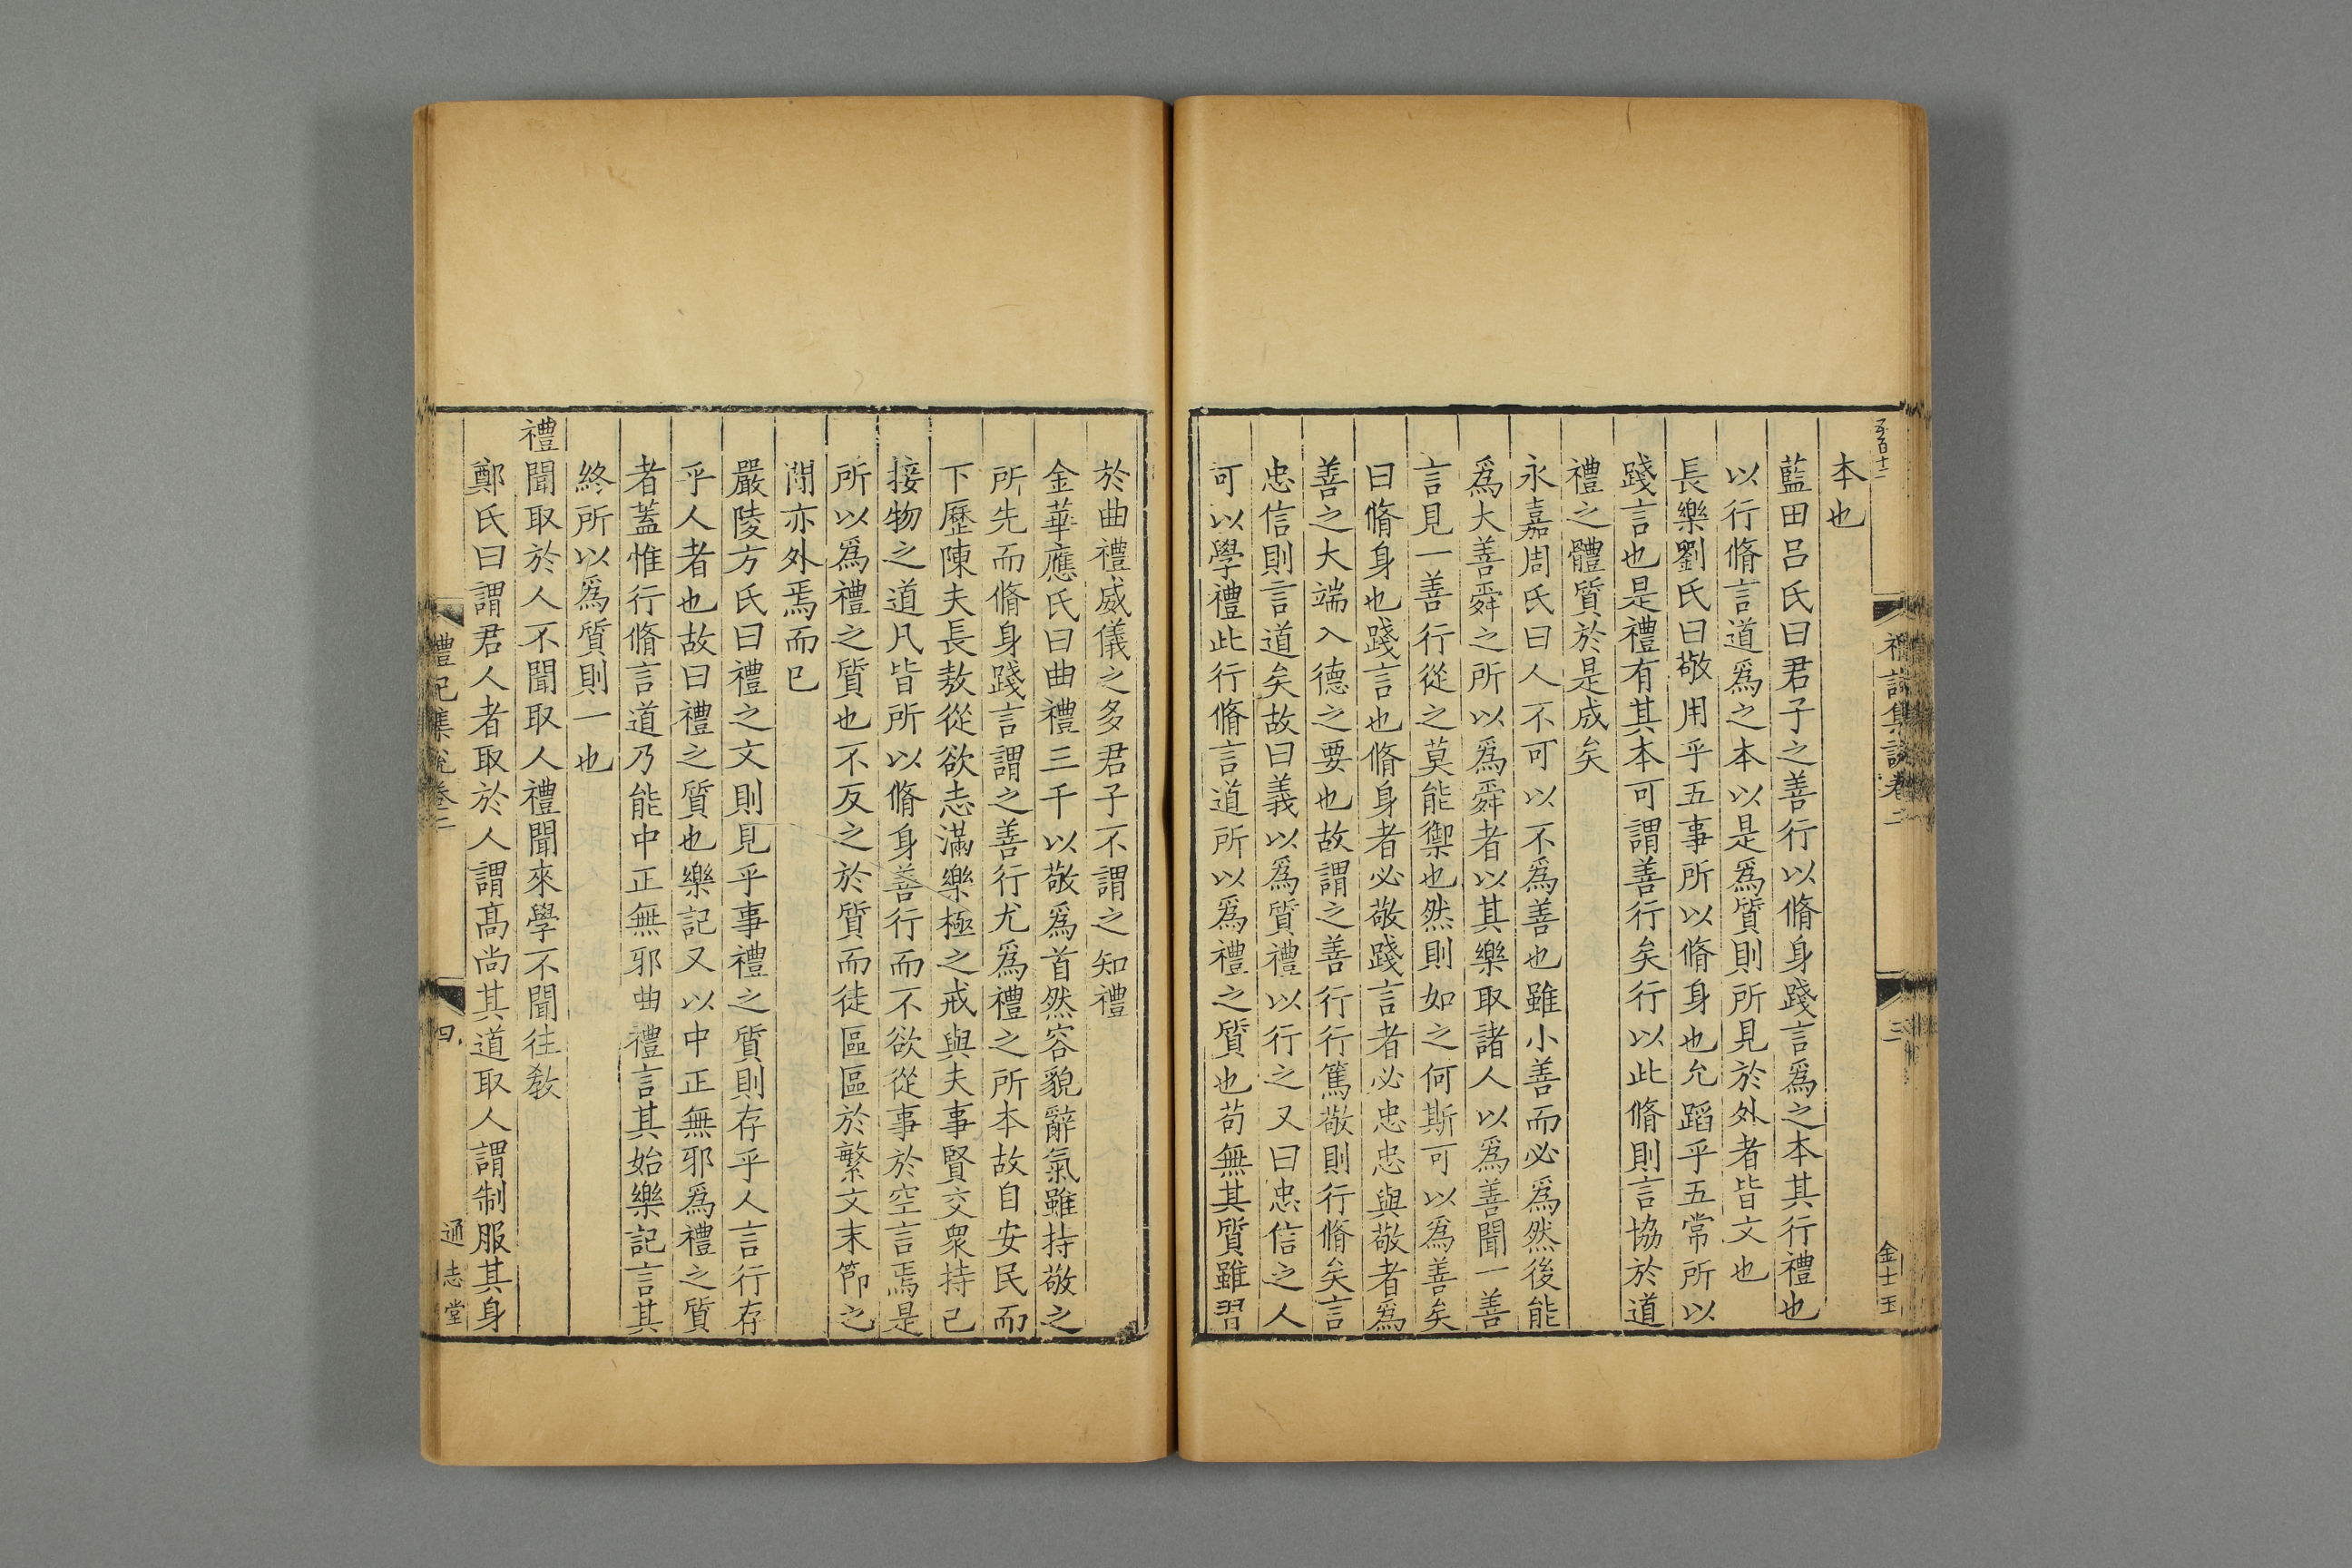 五百十二
禮記集說卷二
三
金士玉
本也
藍田呂氏曰君子之善行以脩身踐言爲之本其行禮也
以行脩言道爲之本以是爲質則所見於外者皆文也
長樂劉氏曰敬用乎五事所以脩身也允蹈乎五常所以
踐言也是禮有其本可謂善行矣行以此脩則言協於道
禮之體質於是成矣
永嘉周氏曰人不可以不爲善也雖小善而必爲然後能
爲大善舜之所以爲舜者以其樂取諸人以爲善聞一善
言見一善行從之莫能禦也然則如之何斯可以爲善矣
曰脩身也踐言也脩身者必敬踐言者必忠忠與敬者爲
善之大端入德之要也故謂之善行行篤敬則行脩矣言
忠信則言道矣故曰義以爲質禮以行之又曰忠信之人
可以學禮此行脩言道所以爲禮之質也苟無其質雖習
於曲禮威儀之多君子不謂之知禮
金華應氏曰曲禮三千以敬爲首然容貌辭氣雖持敬之
所先而脩身踐言謂之善行尤爲禮之所本故自安民而
下歷陳夫長敖從欲志滿樂極之戒與夫事賢交衆持己
接物之道凡皆所以脩身善行而不欲從事於空言焉是
所以爲禮之質也不反之於質而徒區區於繁文末節之
閒亦外焉而已
嚴陵方氏曰禮之文則見乎事禮之質則存乎人言行存
乎人者也故曰禮之質也樂記又以中正無邪爲禮之質
者蓋惟行脩言道乃能中正無邪曲禮言其始樂記言其
終所以爲質則一也
禮聞取於人不聞取人禮聞來學不聞往教
鄭氏曰謂君人者取於人謂高尚其道取人謂制服其身
禮記集說卷二
四
通志堂